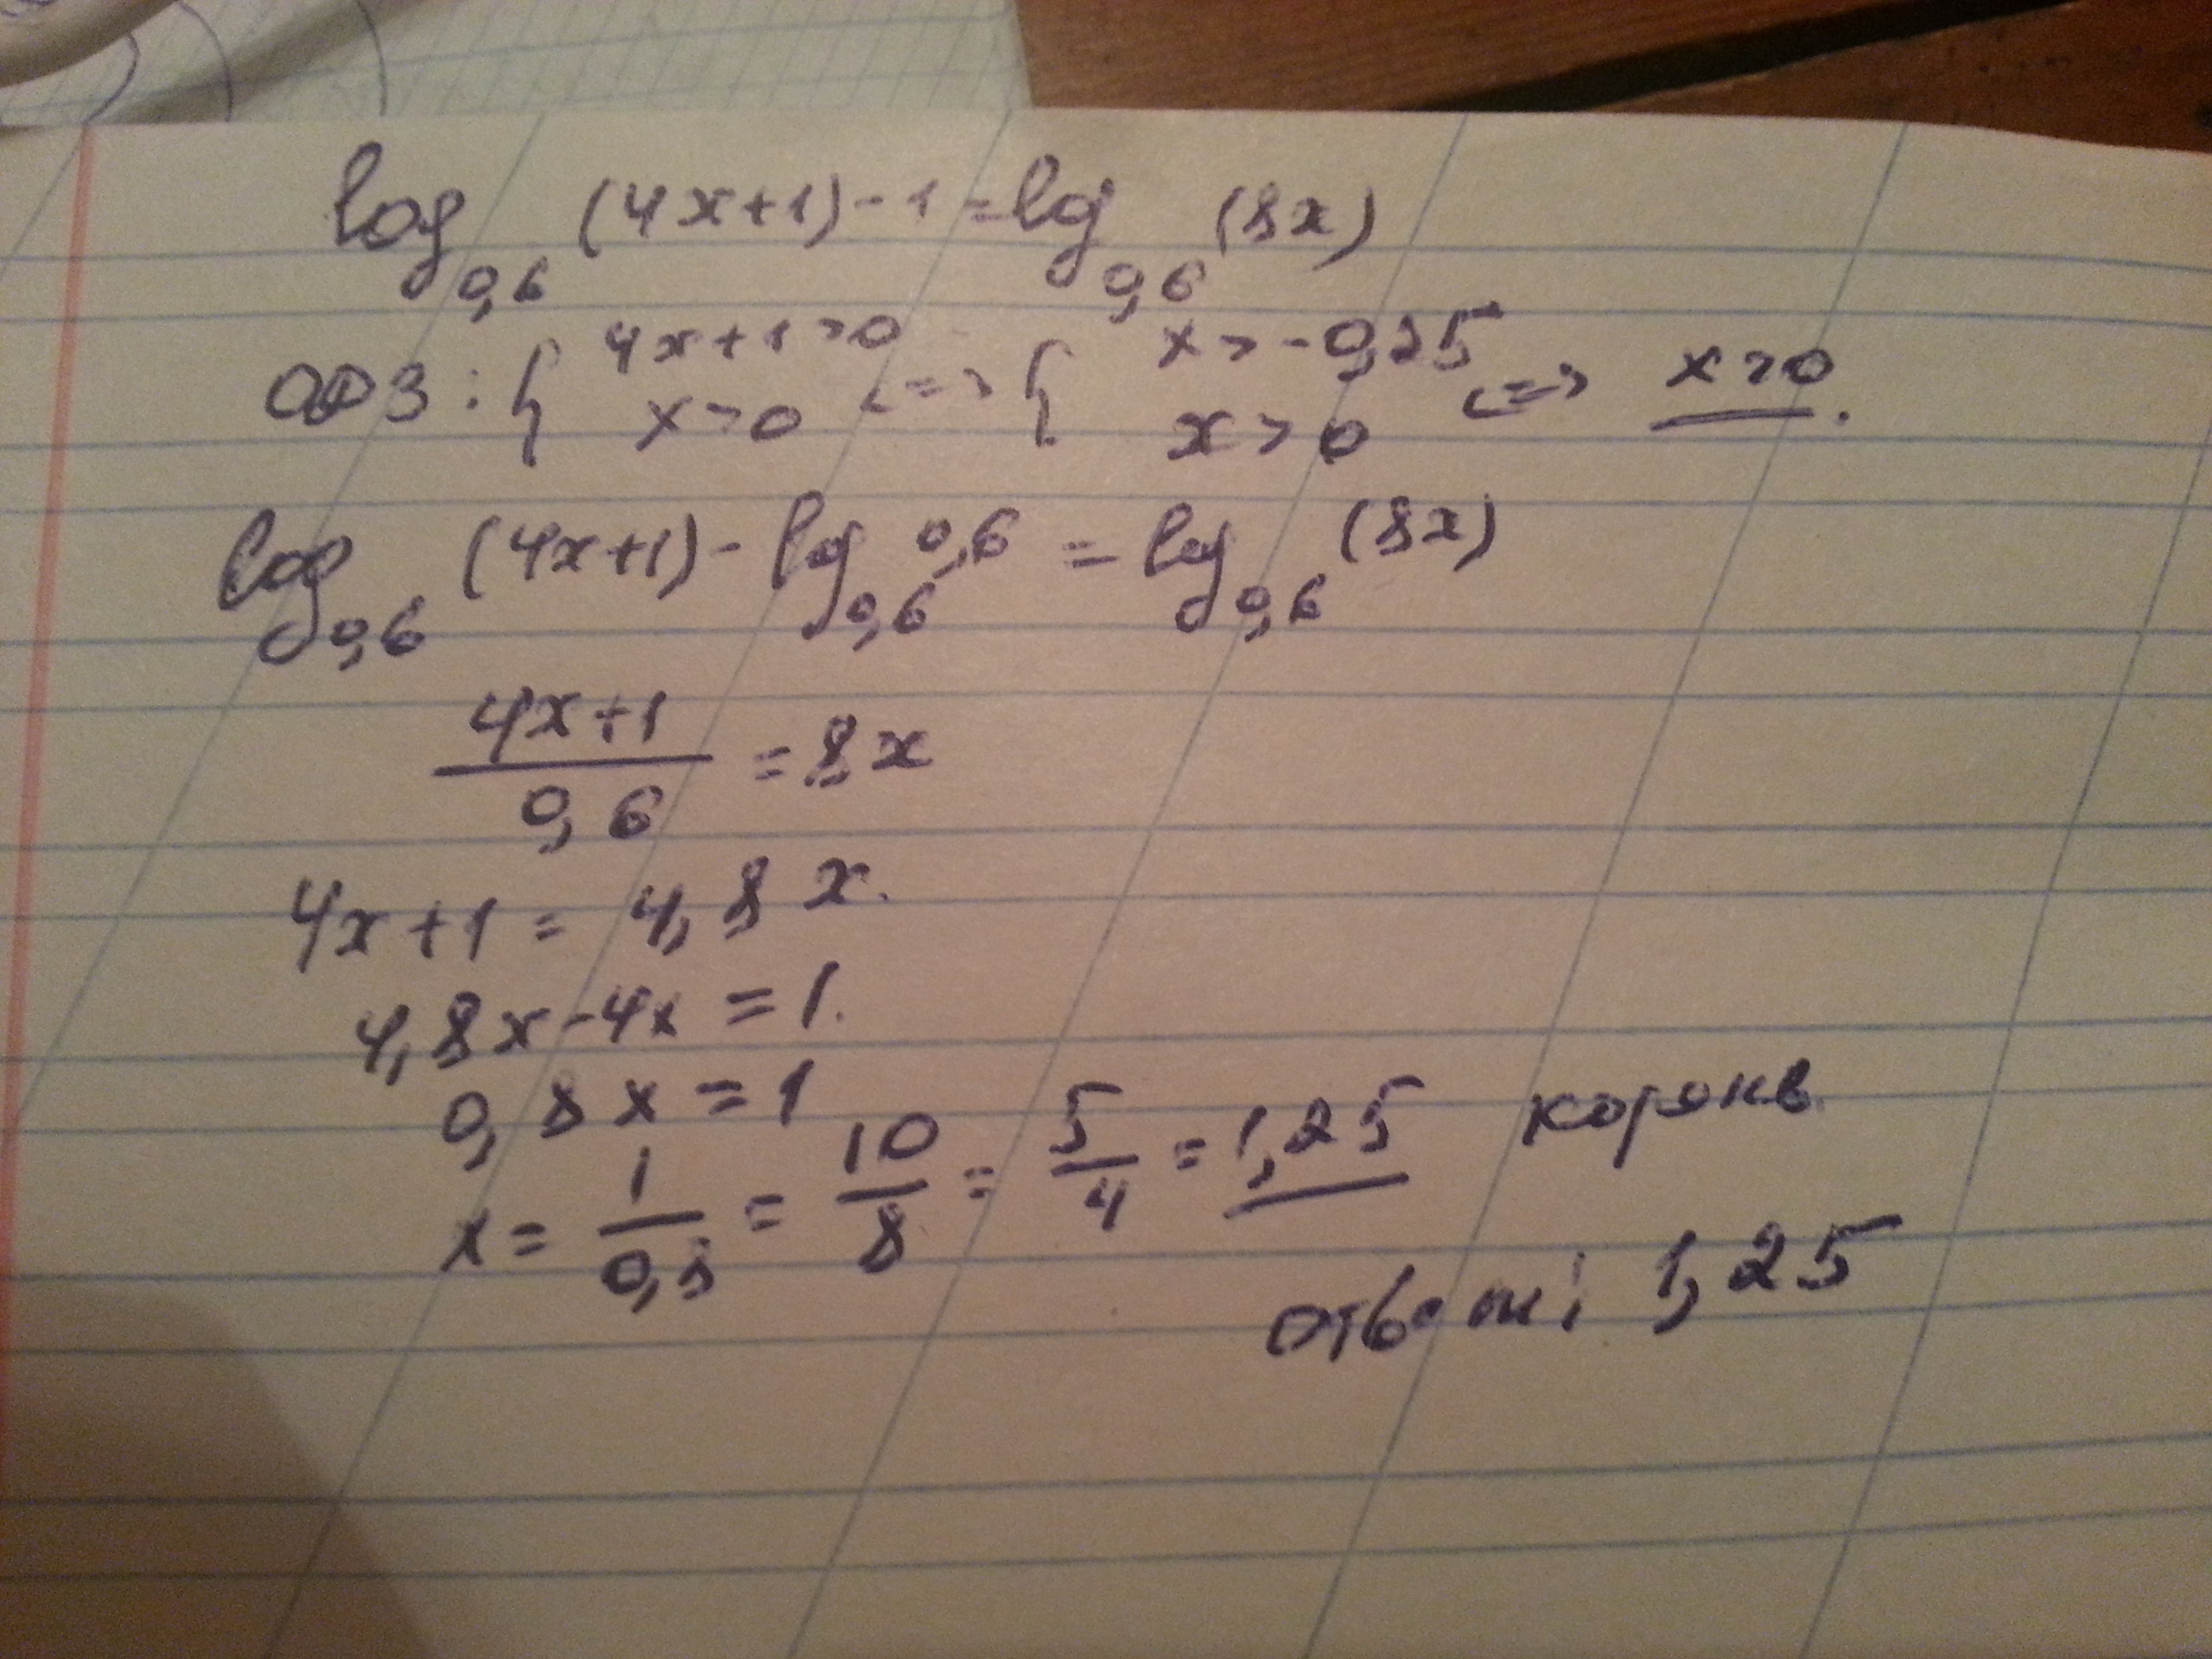 log₀,₆ (4x+1) - 1 = log₀,₆ (8x)
ОДЗ: { 4x+1>0 x>0 <=> { x>-0,25 x>0 <=> x>0.
log₀,₆ (4x+1) - log₀,₆ 0,6 = log₀,₆ (8x)
(4x+1)/0,6 = 8x
4x+1 = 4,8x.
4,8x-4x = 1.
0,8x = 1
x = 1/0,8 = 10/8 = 5/4 = 1,25 корень
ответ: 1,25